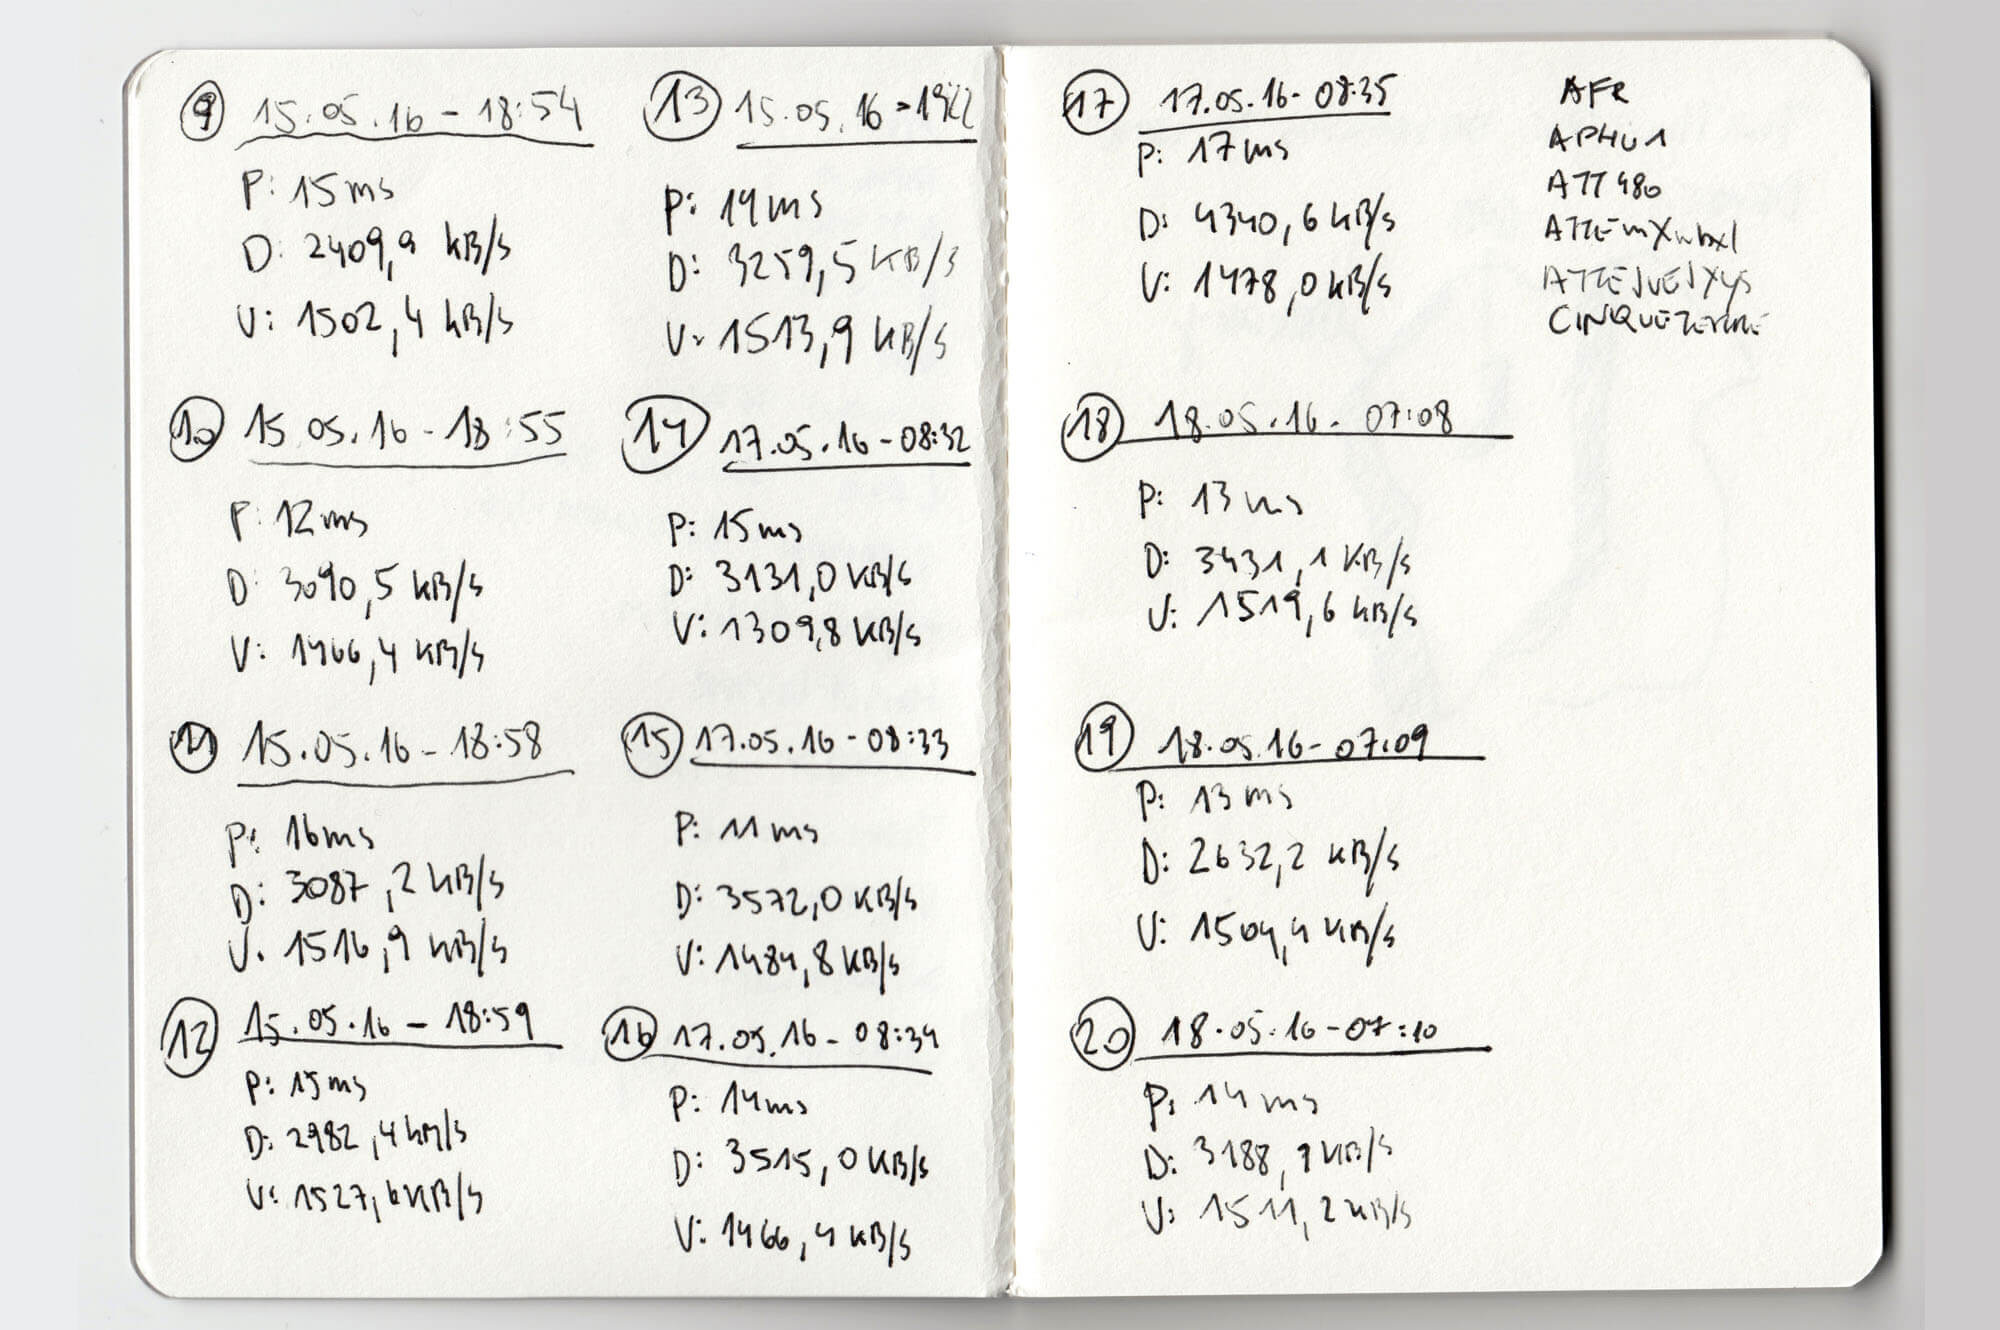 9 15.05.16 - 18:54
P: 15ms
D: 2409,9 KB/s
U: 1502,4 KB/s
10 15.05.16 - 18:55
P: 12ms
D: 3090,5 KB/s
U: 1466,4 KB/s
11 15.05.16 - 18:58
P: 16ms
D: 3087,2 KB/s
U: 1516,9 KB/s
12 15.05.16 - 18:59
P: 15ms
D: 2982,4 KB/s
U: 1527,6 KB/s
13 15.05.16 -
P: 14ms
D: 3259,5 KB/s
U: 1513,9 KB/s
14 17.05.16 - 08:32
P: 15ms
D: 3131,0 KB/s
U: 1309,8 KB/s
15 17.05.16 - 08:33
P: 11ms
D: 3572,0 KB/s
U: 1484,8 KB/s
16 17.05.16 - 08:34
P: 14ms
D: 3515,0 KB/s
U: 1466,4 KB/s
17 17.05.16 - 08:35
P: 17ms
D: 4340,6 KB/s
U: 1478,0 KB/s
18 18.05.16 - 07:08
P: 13ms
D: 3431,1 KB/s
U: 1519,6 KB/s
19 18.05.16 - 07:09
P: 13ms
D: 2632,2 KB/s
U: 1504,4 KB/s
20 18.05.16 - 07:10
P: 14ms
D: 3188,9 KB/s
U: 1511,2 KB/s
AFR
APHU1
ATT480